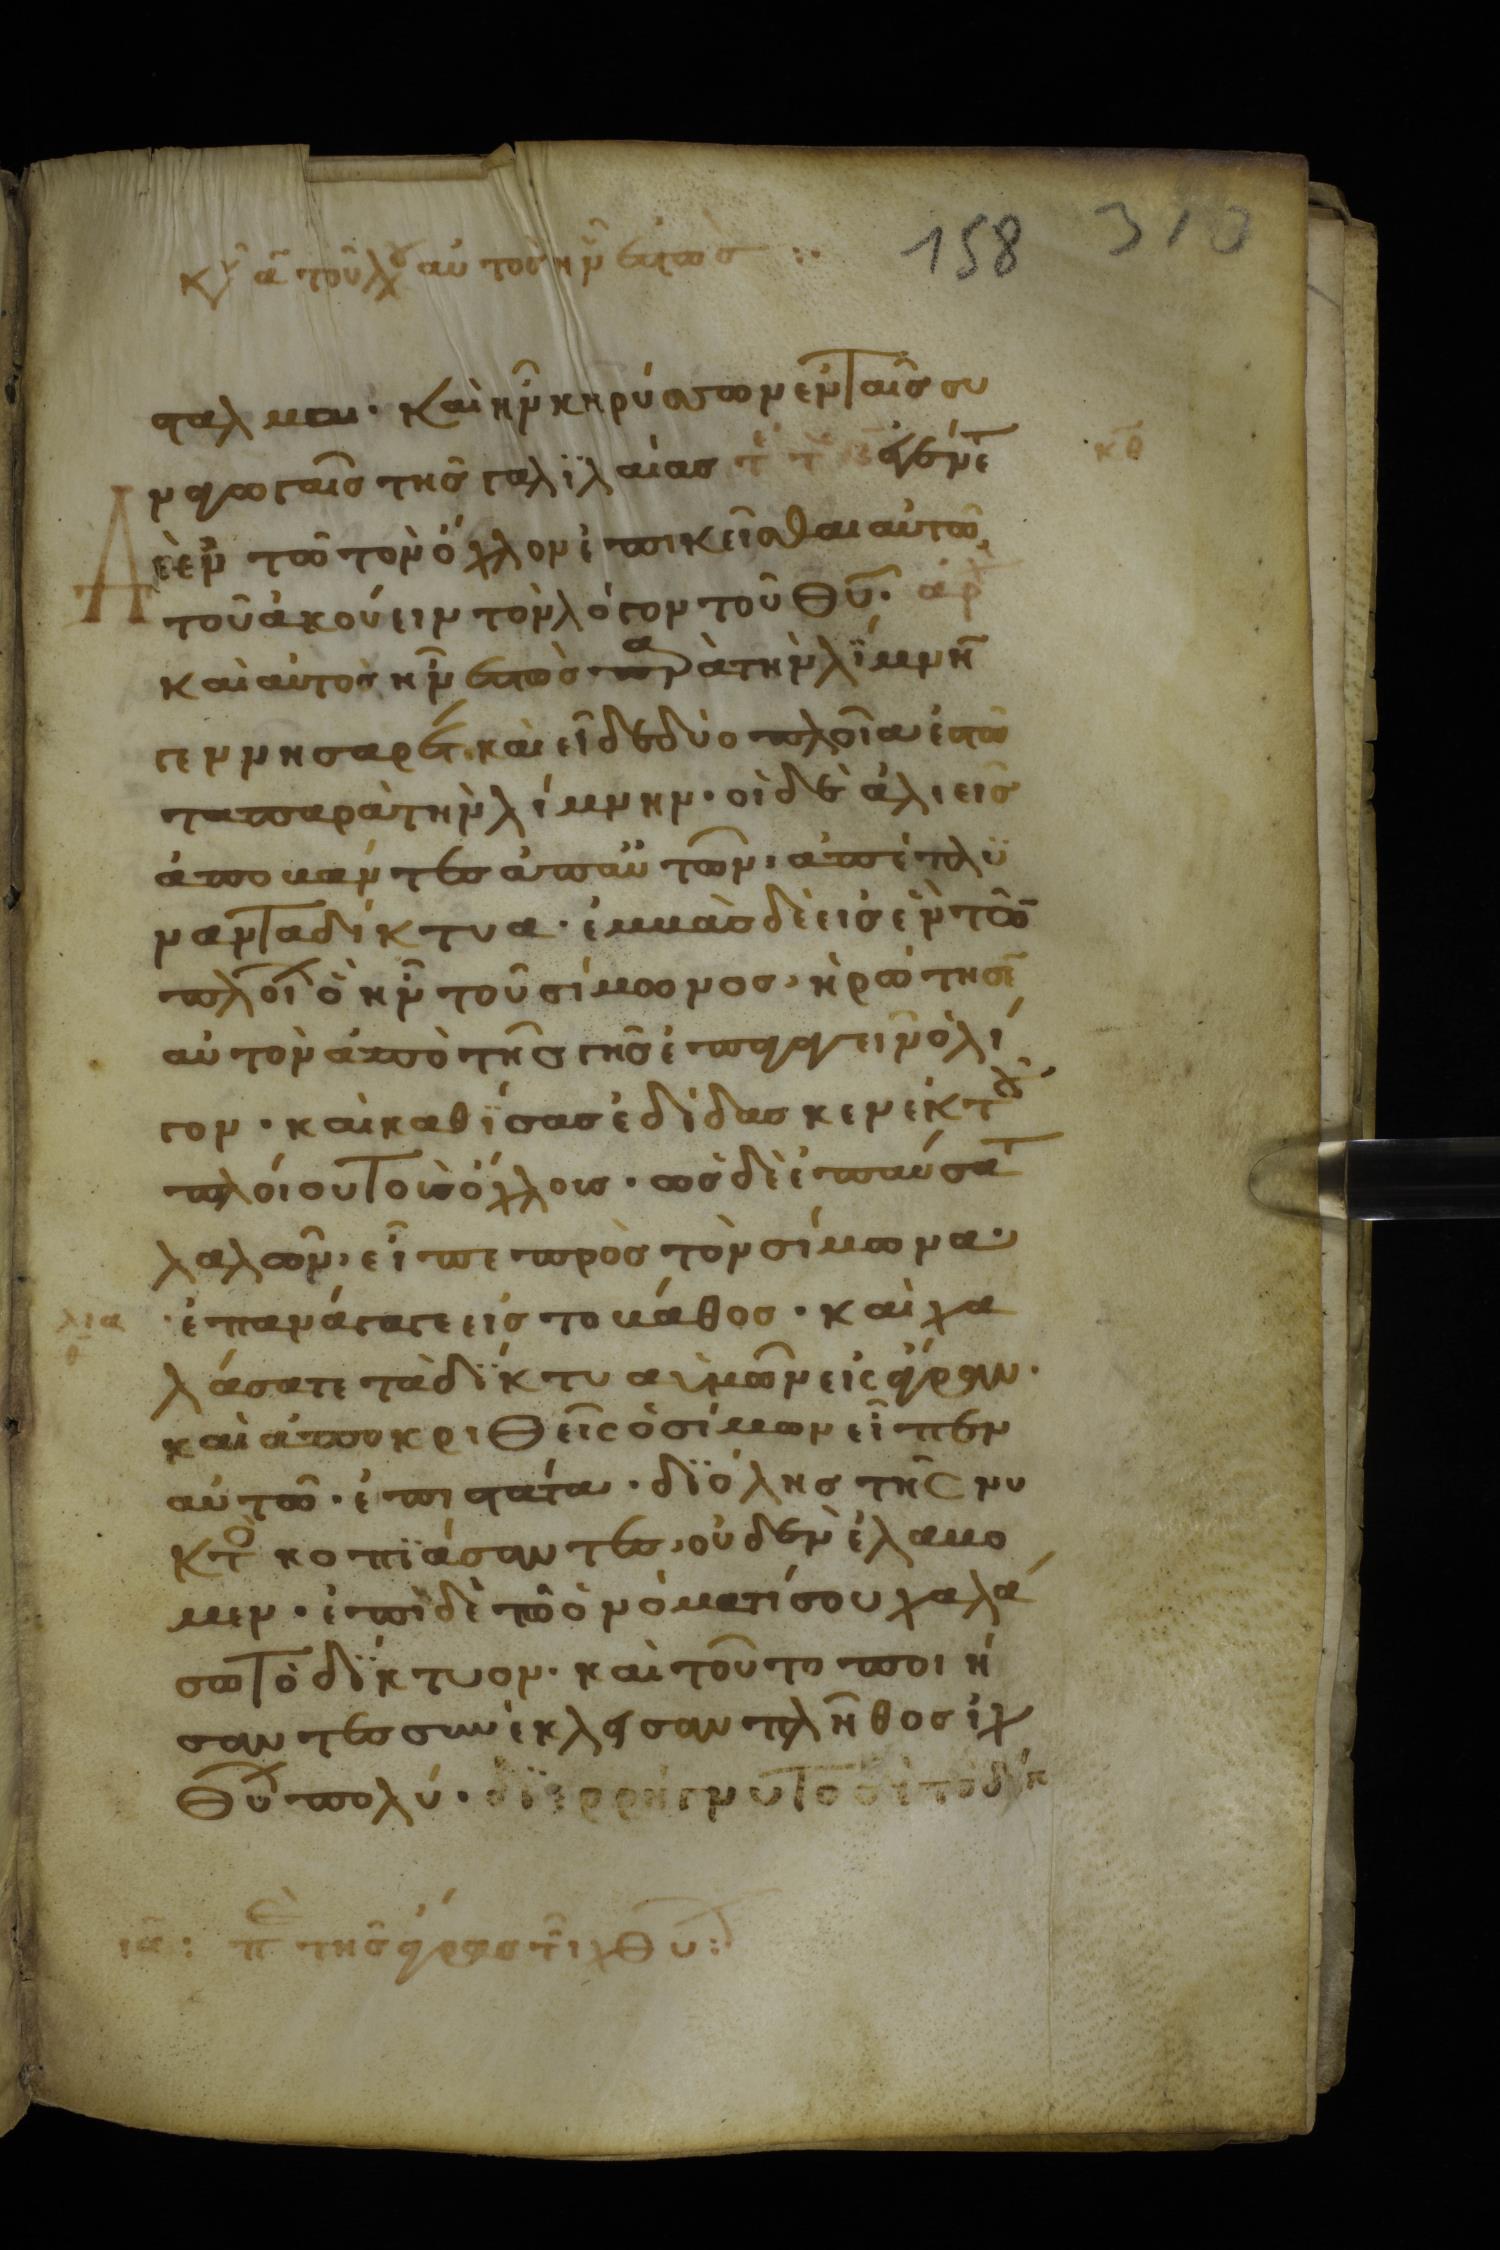 158 310
κυ α του λχ αυτος ην εστως :·
σταλμαι· και ην κηρύσσων ἐν ταις συ
ναγωγαις της γαλϊλαίας ἐγένε
το δὲ ἐν τῶ τὸν ὄχλον ἐπικεῖσθαι αὐτῶ,
τοῦ ἀκούειν τὸν λόγον τοῦ θῡ· ἀρχ
και αὐτὸς ην ἑστὼς παρὰ τὴν λΐμνην
γεννησαρέτ· και εἶδε δύο πλοῖα ἑστῶ
τα παρὰ τὴν λίμνην· οἱ δὲ ἁλιεις
ἀποβάντες ἀπ αὐτῶν, ἀπέπλυ
ναν τα δίκτυα· ἐμβὰς δὲ εἰς ἓν τῶν
πλοί ὃ ἦν τοῦ σίμωνος, ἠρώτησε
αὐτὸν ἀπὸ τῆς γῆς ἐπαναγαγεῖν ὀλί
γον· και καθΐσας ἐδίδασκεν ἐκ τοῦ
πλοίου τοὺς ὄχλους· ὡς δὲ ἐπαύσατο
λαλῶν, εἶπε πρὸς τὸν σίμωνα·
ἐπανάγαγε εἰς το βάθος· και χα
λάσατε τὰ δΐκτυα ὑμῶν εἰς ἄγραν·
και ἀποκριθεῖς ὁ σίμων εἶπεν
αὐτῶ· ἐπιστάτα· δι ὅλης τῆς νυ
κτὸ κοπϊάσαντες, οὐδὲν ἐλάβο
μεν· ἐπὶ δὲ τῶ ὀνόματί σου χαλά
σω τὸ δΐκτυον· και τοῦτο ποιή
σαντες συνέκλεισαν πλῆθος ἰχ
θύ πολύ· διερρήγνυτο δὲ τὸ δίκ
ια : π της ἄγρας τ ἰχθυ :·
κθ
λια
θ